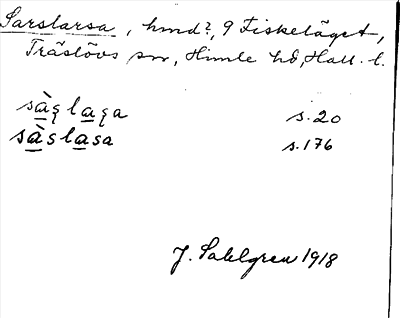 Sarslarsa, hmd?, 9 Fiskeläget,
Träslövs sn, Himle hd, Hall. l.
sàʂlaʂa s. 20
sàslasa s. 176
J. Sahlgren 1918